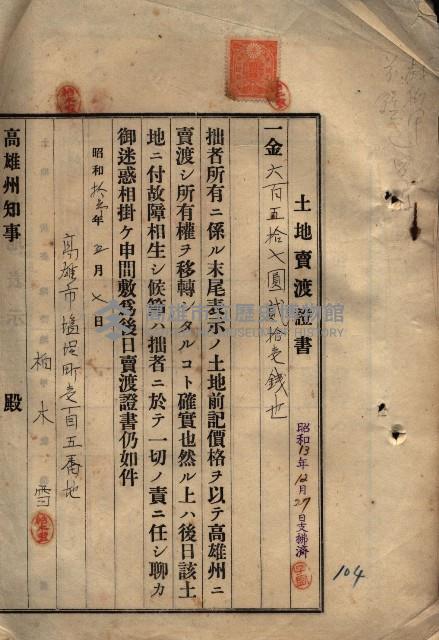 土地賣渡證書
一金六百五拾七圓貳拾壱錢也
昭和13年12月27日支拂濟
拙者所有ニ係ル末尾表示ノ土地前記價格ヲ以テ高雄州ニ
賣渡シ所有權ヲ移轉シタルコト確實也然ル上ハ後日該土
地ニ付故障相生シ候節ハ拙者ニ於テ一切ノ責ニ任シ聊カ
御迷惑相掛ケ申間敷爲後日賣渡證書仍如件
昭和拾参年五月七日
高雄市塩埕町壱百五番地
柏木
高雄州知事 殿
104
高雄市立歷史博物館
KAOHSIUNG MUSEUM OF HISTORY